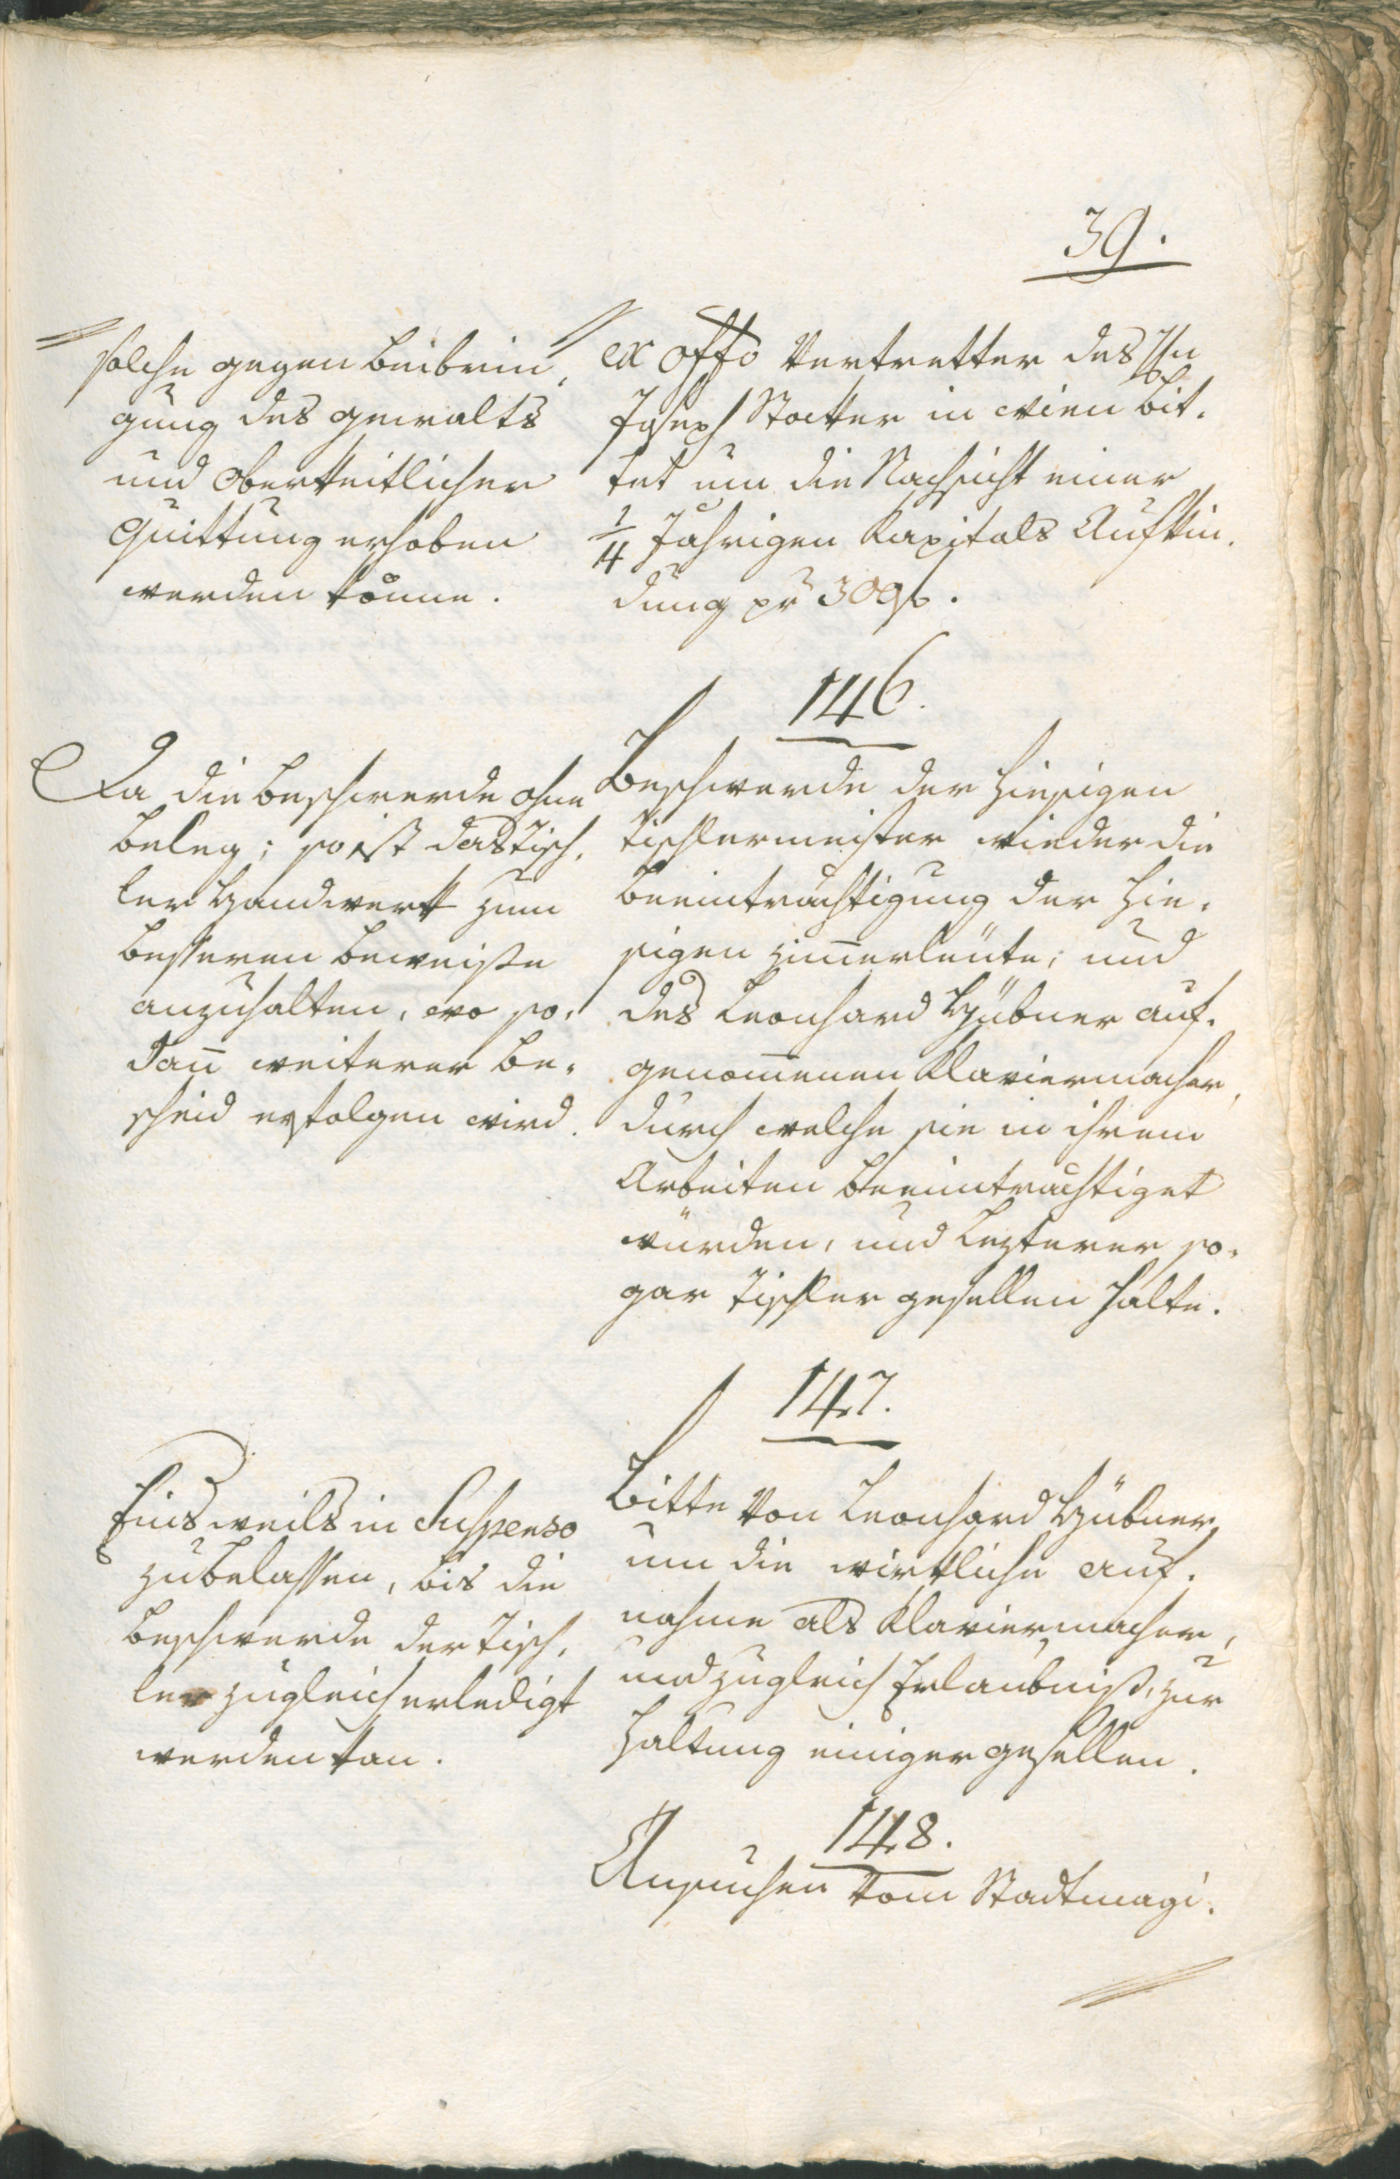 39.
solche gegen Beibrin„
gung des gewalts
und Oberkeitlicher
Quittung erhoben
werden könne.
ex offo Vertretter des H„n
Joseph Stocker in Wien bit„
tet um die Nachsicht einer
1/4 Jährigen Kapitals Aufkün„
dung pr 300 f.
146.
Da die Beschwerde ohne
Beleg; so ist das Tisch„
ler Handwerk zum
besseren Beweise
anzuhalten, wo so„
dan̄ weiterer Be„
scheid erfolgen wird.
Beschwerde der hiesigen
Tischlermeister wieder die
Beeinträchtigung der hie„
sigen Zim̄erleüte; und
des Leonhard Hübner auf„
genom̄enen Klaviermacher,
durch welche sie in ihrem
Arbeiten beeinträchtiget
würden, und Lezterer so„
gar Tischler gesellen halte.
147.
Einsweils in Suspenso
zubelassen, bis die
Beschwerde der Tisch„
ler zugleich erledigt
werden kan.
Bitte von Leonhard Hübner
um die wirkliche auf„
nahme als Klaviermacher,
und zugleich Erlaubniß, zur
Haltung einiger gesellen.
148.
Ansuchen vom Stadtmagi„